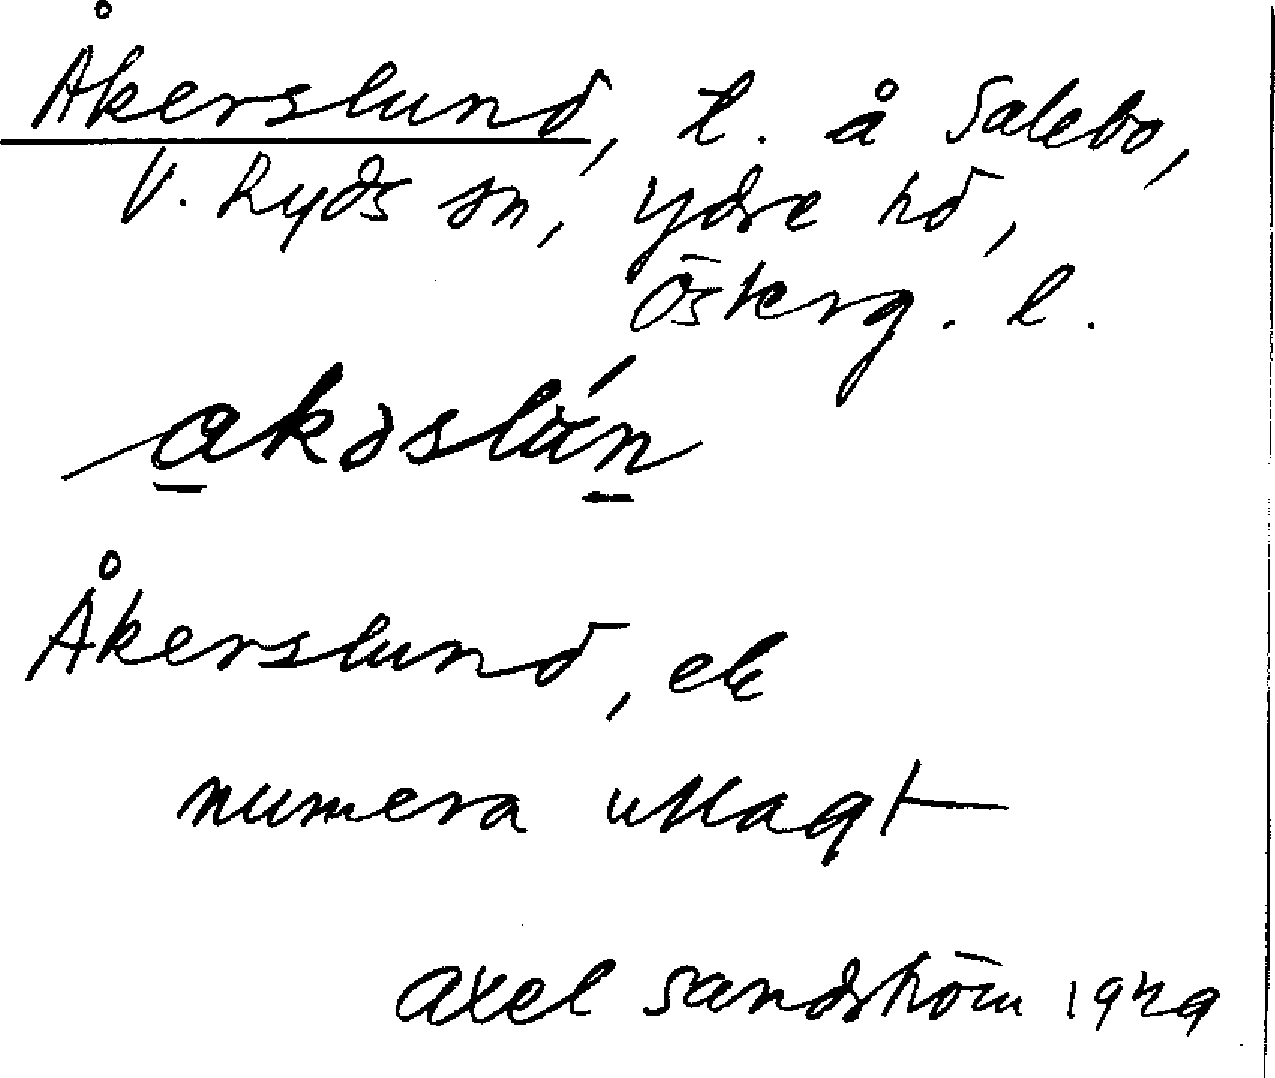 Åkerslund, l. å Salebo,
V. Ryds sn, Ydre hd,
Österg. l.
akəslún
Åkerslund, ek
numera utlagt
Axel Sandström 1929